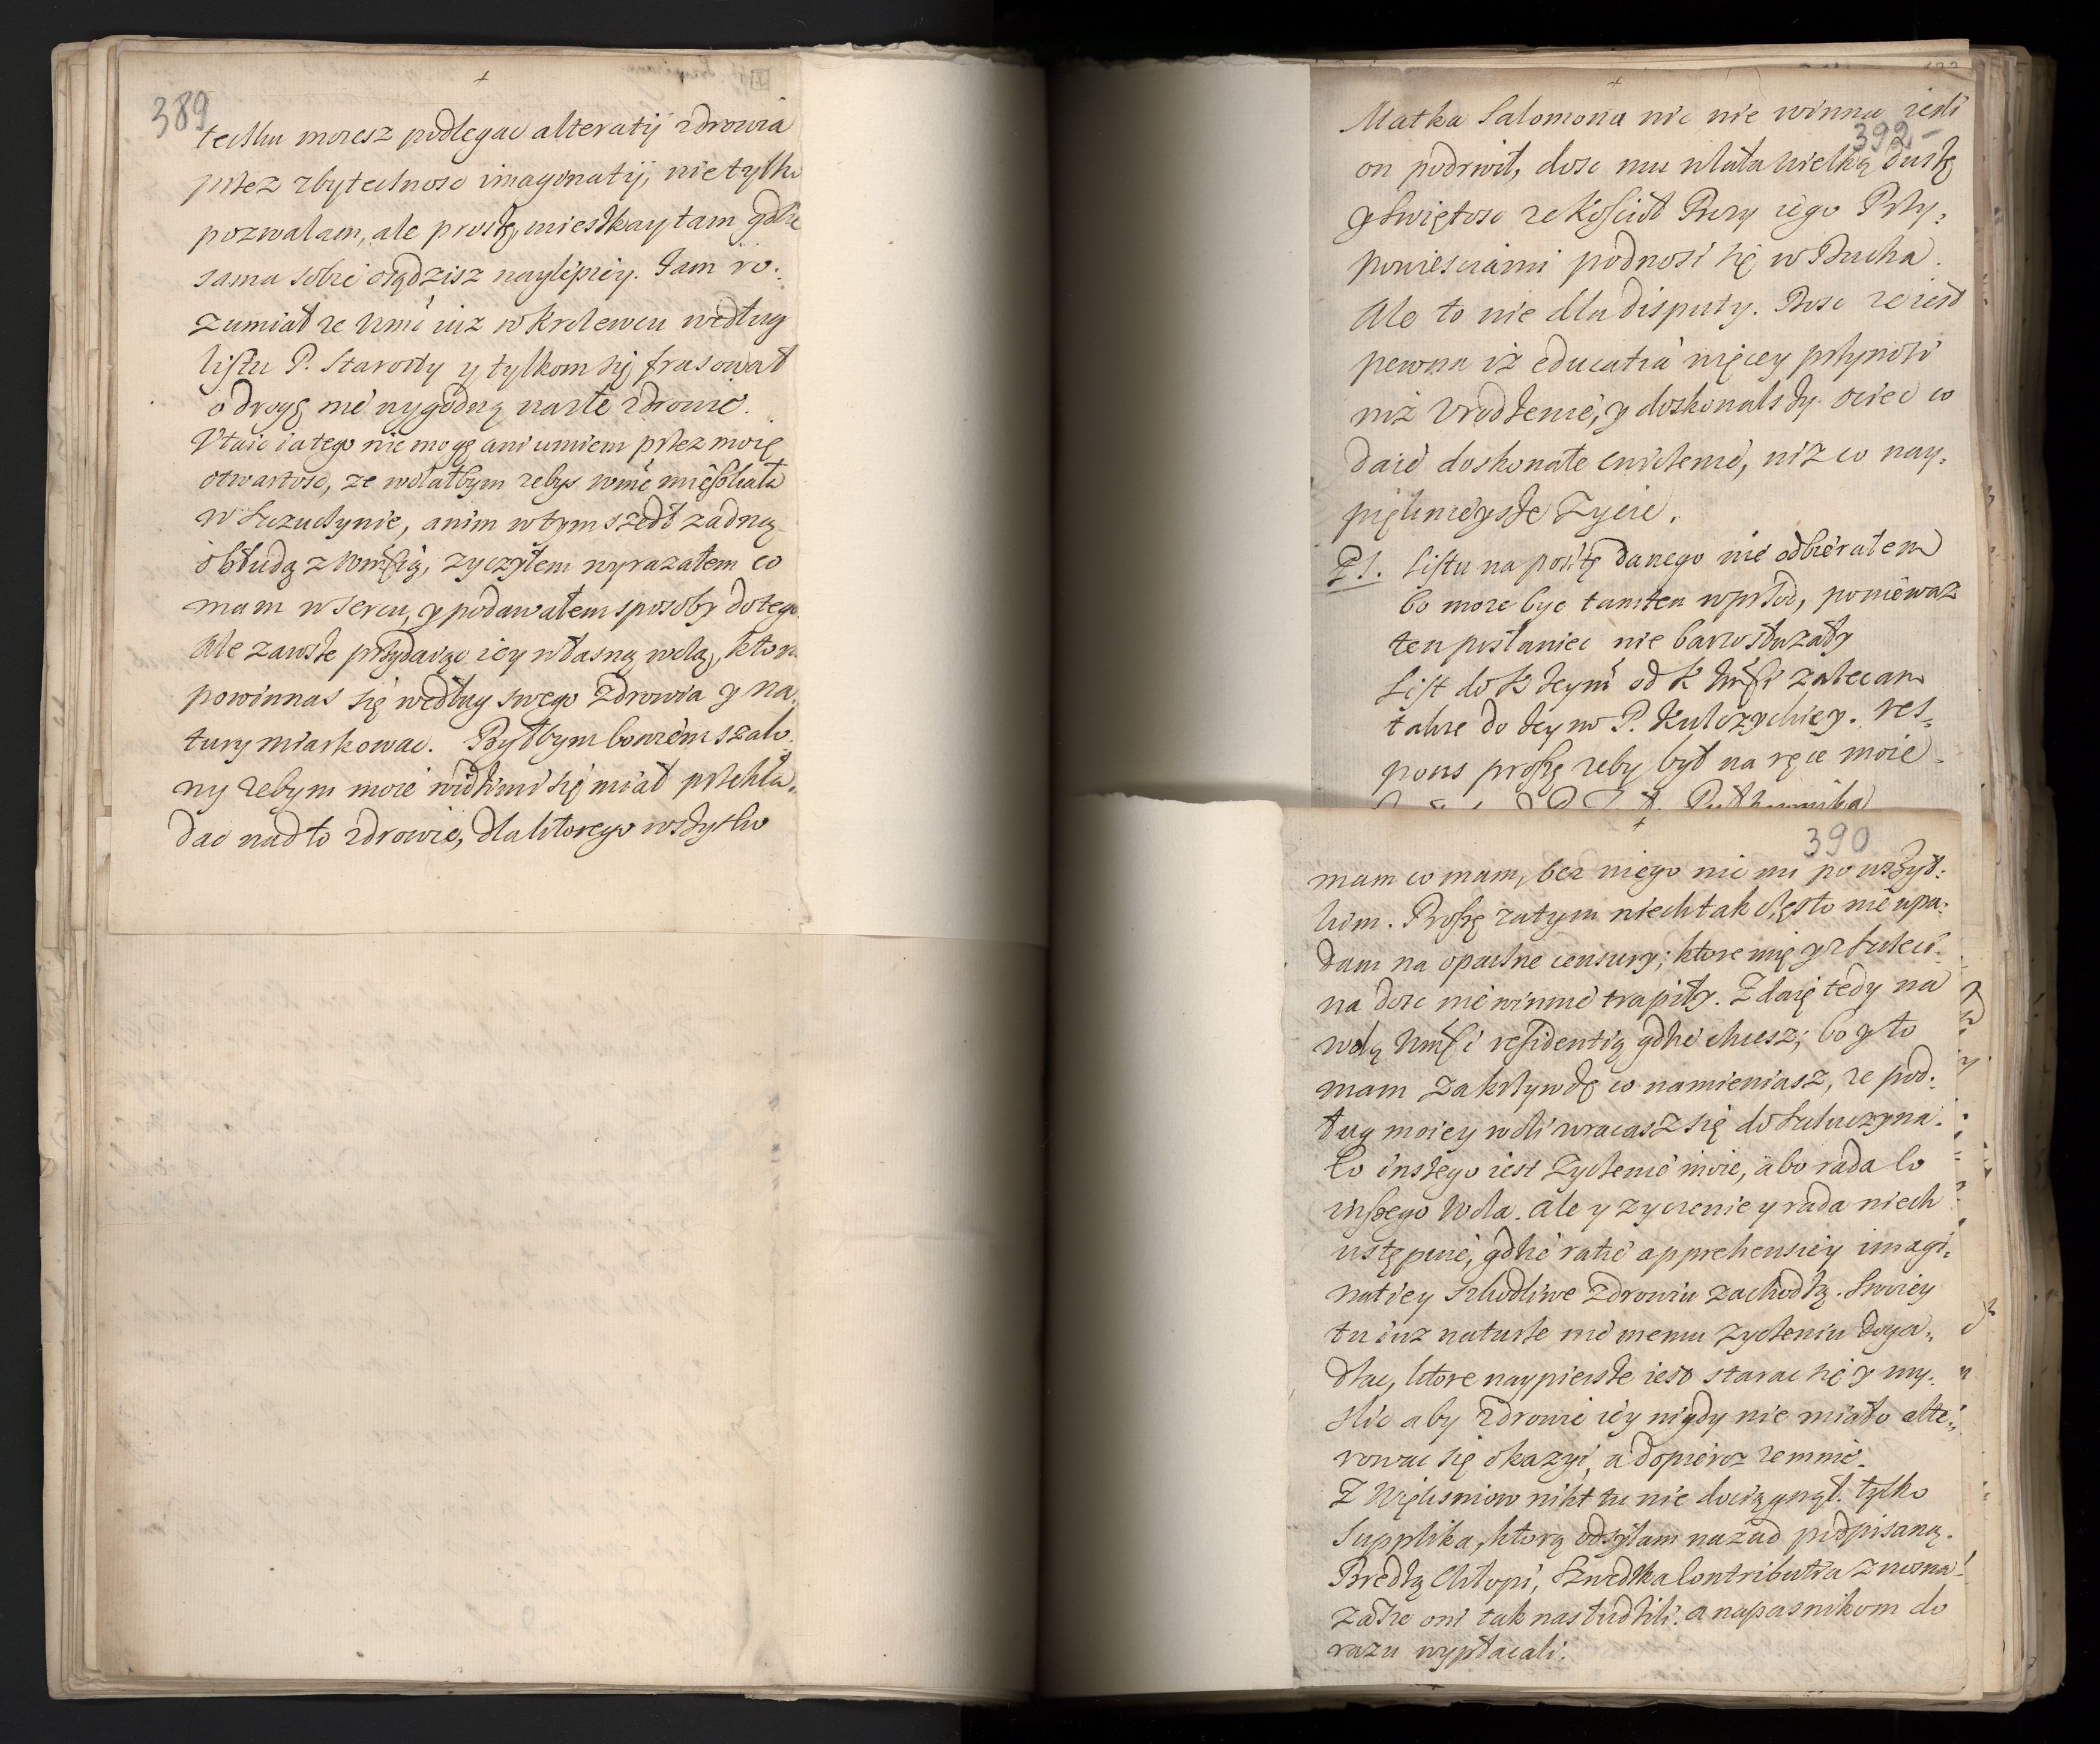 +
389
teckhu mozesz podlegac alteratij zdrowia
przez zbytecznosc imaginatij, nie tylko
pozwalam, ale proszę, mieszkay tam gdzie
sama sobie osądzisz naylepiey. Iam ro:
zumiał ze Wmć iuz w Krolewcu według
listu P. Starosty y tylkom się frasował
o drogę nie wygodną na złe zdrowie.
Vtaic ia tego nie mogę ani umiem przez moię
otwartosc, ze wolałbym zebys Wmć mieszkała
w Łuzuczynie, anim w tym szedł zadną
obłudą z Wmścią, zyczyłem wyrazałem co
mam w sercu, y podawałem sposoby do tego
Ale zawsze przydaiąc iey własną wolą, ktorą
powinnas się według swego zdrowia y na:
tury miarkowac. Byłbym bowiem szalo:
ny zebym moie widzimi się miał przekła:
dac nad to zdrowie, dla ktorego wszystko
+
Matka Salomona nic nie winna iesli
392
on podrwił, dosc mu wlała wielką duszę
y swiętosc ze Kościoł Bozy iego Przy:
powiesciami podnosi się w Ducha.
Ale to nie dla disputy. Dosc ze iest
pewna iz educatia więcey przynosi
niz Vrodzenie, y doskonalszy ociec co
daie doskonałe cwiczenie, niz co nay:
pięknieysze Zycie.
PS. Listu na posztę danego nie odbierałem
bo moze byc tamten wprzod, poniewaz
ten posłaniec nie barzo słuzały
List do K Jeym od K Wmści zalecam
takze do Jeym P. Kulczyckiey. res:
pons proszę zeby był na ręce moie
+
390
mam co mam, bez niego nic mi po wszyt:
kim. Proszę zatym niech tak często nie upa:
dam na opaczne censury; ktore mię y z Łuleci:
na dosc niewinnie trapiły. Zdaię tedy na
wolą Wmści residentią gdzie chcesz; bo y to
mam za krzywdę co namieniasz, ze pod:
ług moiey woli wracasz się do Łuluczyna.
Co inszego iest Zyczenie moie, abo rada co
inszego Wola. Ale y zyczenie y rada niech
ustępuie, gdzie racie apprehensiey imagi:
natiey szkodliwe zdrowiu zachodzą. Swoiey
tu iuz naturze nie memu zyczeniu doga:
dzac, ktore naypiersze iest starac się y my:
slic aby zdrowie iey nigdy nie miało alte:
rowac się okazyi, a dopieroz zemnie.
Z Więksniow nikt tu nie dociągnął. tylko
Supplika, ktorą odsyłam nazad podpisaną.
Bredzą Chłopi, Szwedzka Contributia znowa!
Zawsze oni tak nas łudzili: a napasnikom do
razu wypłacali.